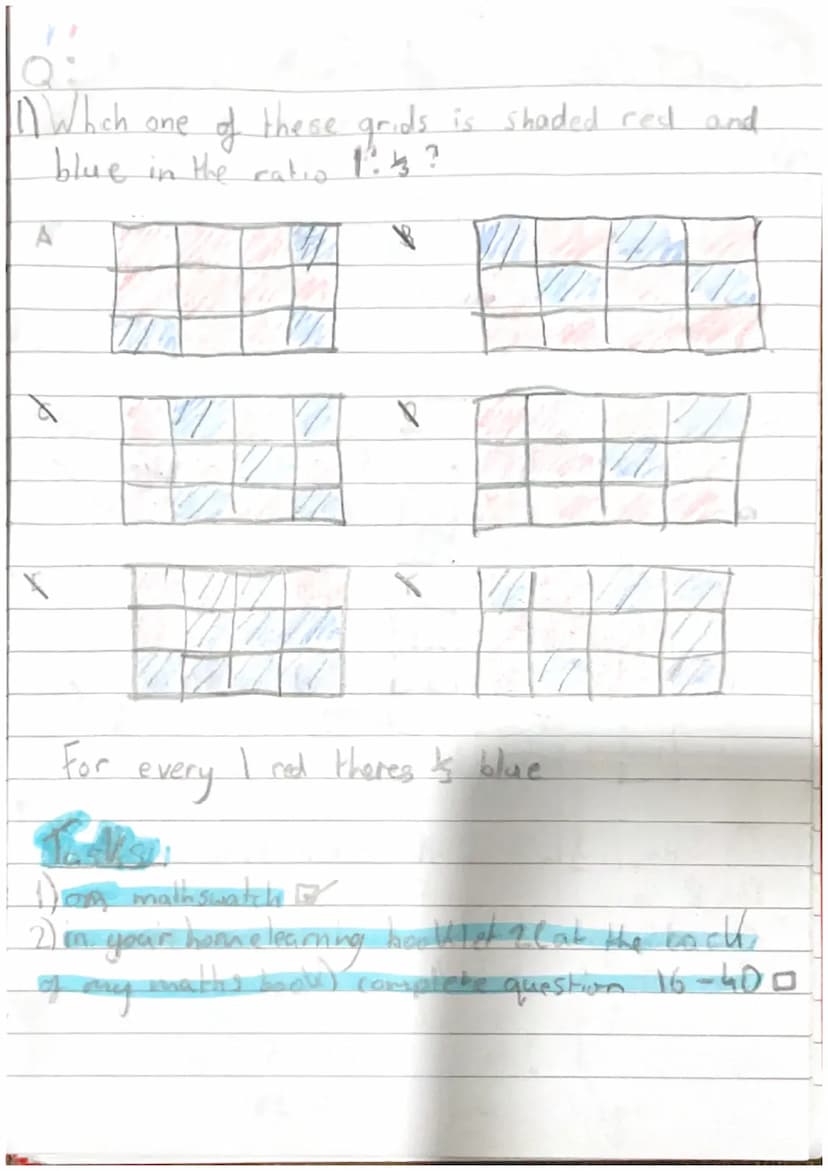 Q:
1) Which one of these grids is shaded red and
blue in the ratio 1:⅓?
A B
C D
For every 1 red theres ⅓ blue
Tasks:
1) on mathswatch
2) in your homelearning booklet 2 (at the back
of my maths book) complete question 16-40